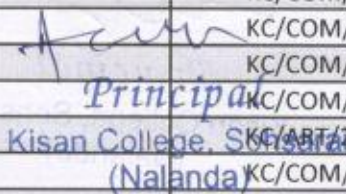 KC/COM/
KC/COM/
Principal KC/COM/
Kisan College, KC/ART/
(Nalanda) KC/COM/